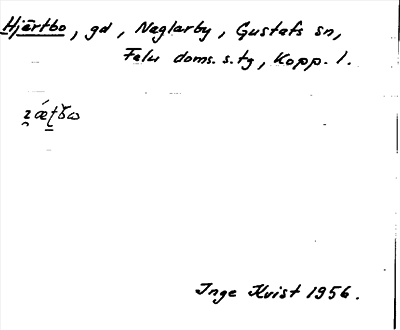 Hjärtbo, gd, Naglarby, Gustafs sn,
Falu doms. s. tg, Kopp. l.
Inge Kvist 1956.